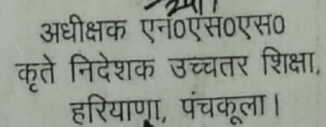 अधीक्षक एन0एस0एस0
कृते निदेशक उच्चतर शिक्षा,
हरियाणा, पंचकूला।